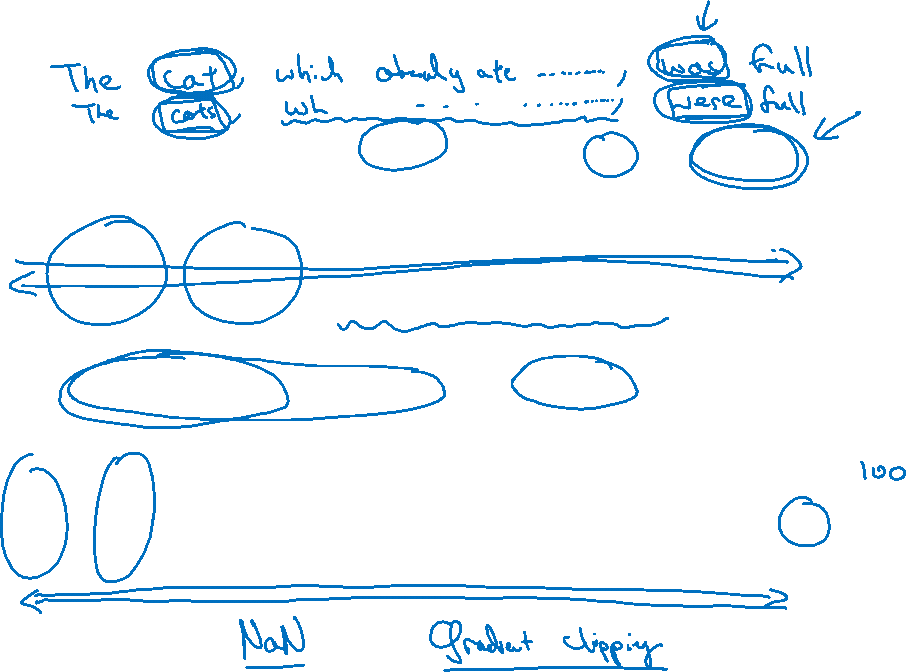 The cat, which already ate ........, was full
The cats, wh ... ........, were full
100
NaN Gradient clipping